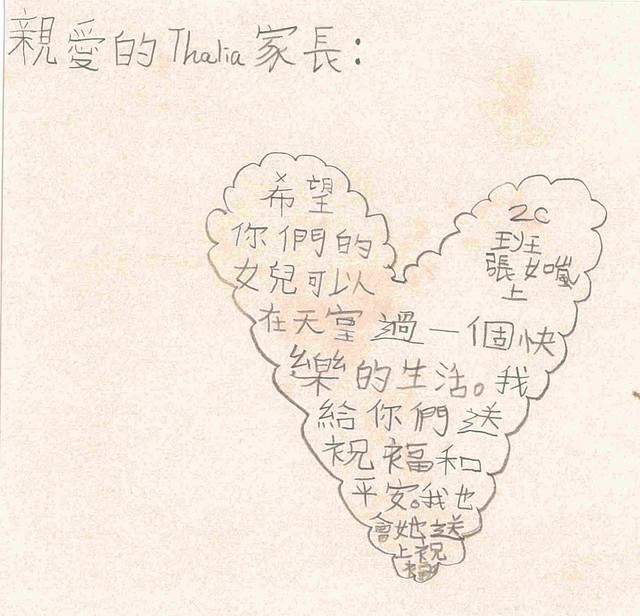 親愛的Thalia家長:
希望
你們的
女兒可以
在天堂過一個快
樂的生活。我
給你們送
祝福和
平安。我也
會她送
上祝
福
2C
班
張如嵐
上